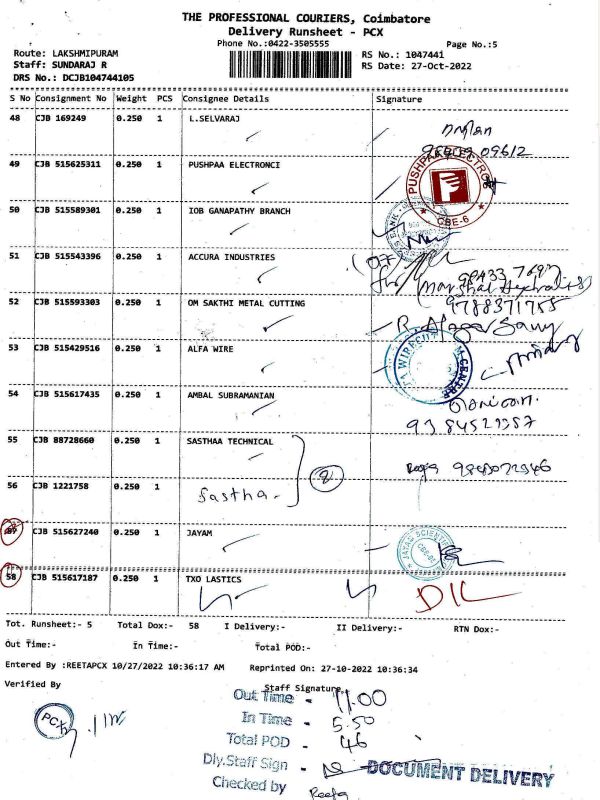 THE PROFESSIONAL COURIERS, Coimbatore
Delivery Runsheet - PCX
Phone No.:0422-3505555 Page No.:5
Route: LAKSHMIPURAM RS No.: 1047441
Staff: SUNDARAJ R RS Date: 27-Oct-2022
DRS No.: DCJB104744105
S No Consignment No Weight PCS Consignee Details Signature
48 CJB 169249 0.250 1 L.SELVARAJ
09612
49 CJB 515625311 0.250 1 PUSHPAA ELECTRONCI
PUSHPAA ELECTRO
CBE-6
50 CJB 515589301 0.250 1 IOB GANAPATHY BRANCH
51 CJB 515543396 0.250 1 ACCURA INDUSTRIES
52 CJB 515593303 0.250 1 OM SAKTHI METAL CUTTING
9788371755
53 CJB 515429516 0.250 1 ALFA WIRE
54 CJB 515617435 0.250 1 AMBAL SUBRAMANIAN
55 CJB 88728660 0.250 1 SASTHAA TECHNICAL
2
56 CJB 1221758 0.250 1 Sastha
57 CJB 515627240 0.250 1 JAYAM
58 CJB 515617187 0.250 1 TXO LASTICS
Tot. Runsheet:- 5 Total Dox:- 58 I Delivery:- II Delivery:- RTN Dox:-
Out Time:- In Time:- Total POD:-
Entered By :REETAPCX 10/27/2022 10:36:17 AM Reprinted On: 27-10-2022 10:36:34
Verified By Staff Signature
Out Time - 11.00
In Time - 5.50
Total POD - 46
Dly.Staff Sign - DOCUMENT DELIVERY
Checked by Reeta
PCX